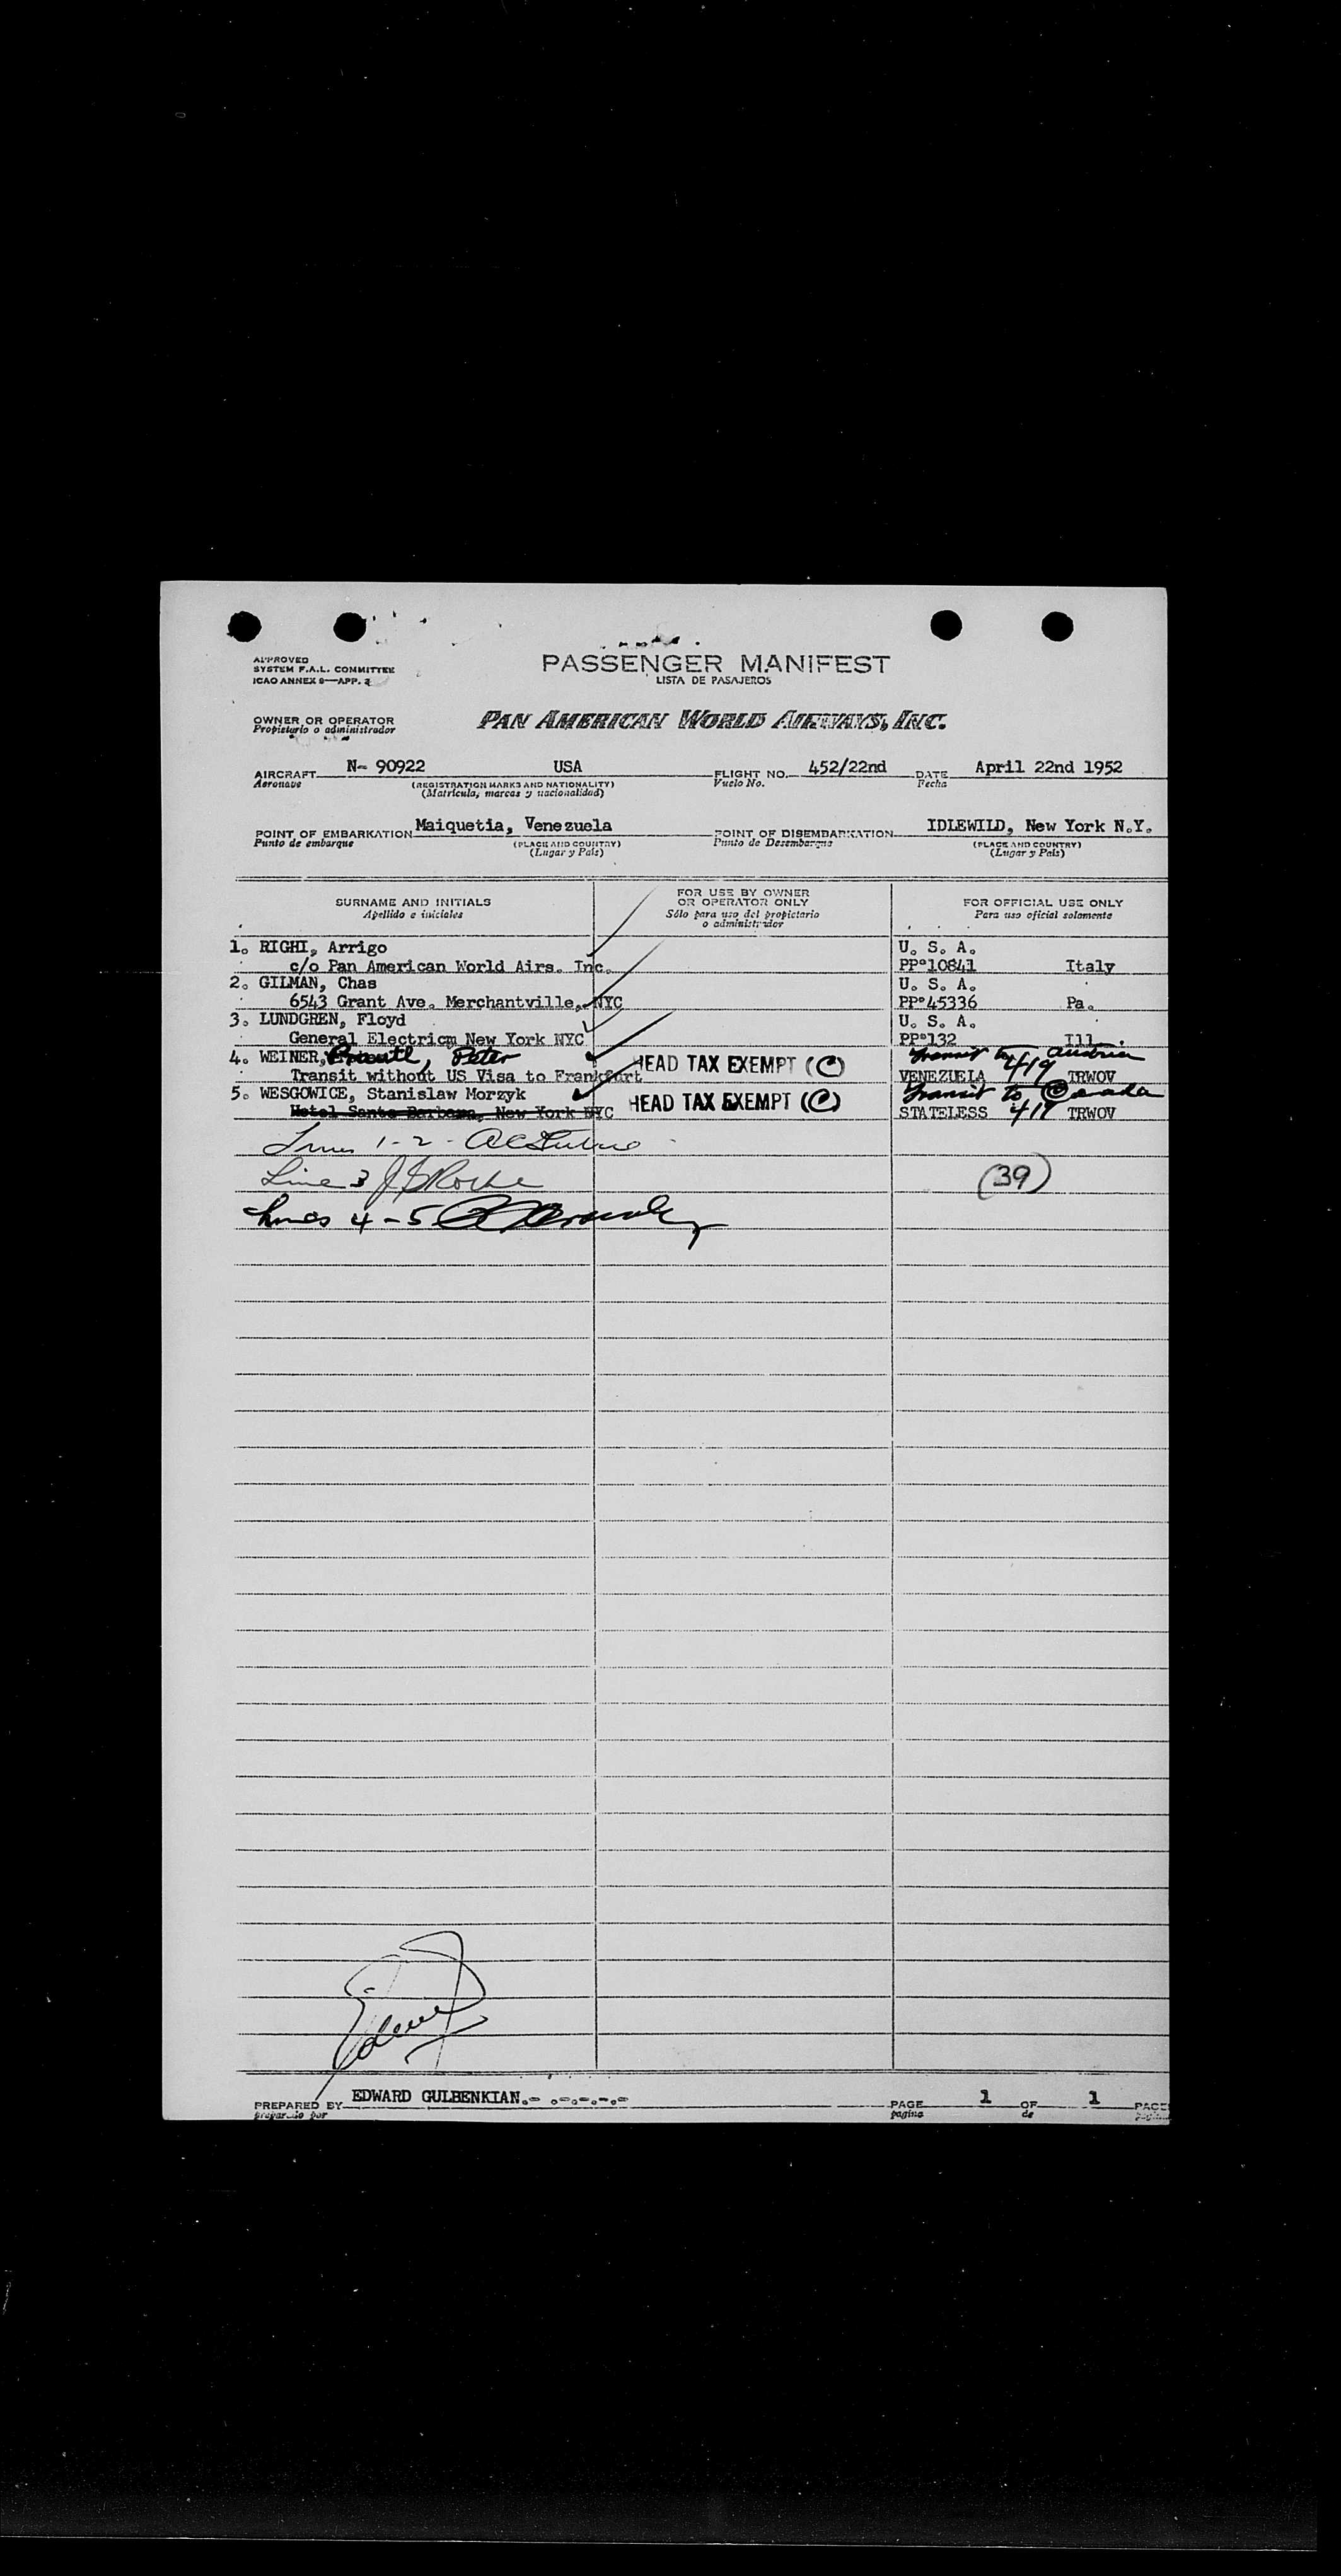 APPROVED
SYSTEM F.A.L. COMMITTEE
ICAO ANNEX 9—APP. 2
PASSENGER MANIFEST
LISTA DE PASAJEROS
OWNER OR OPERATOR
Propietario o administrador
PAN AMERICAN WORLD AIRWAYS, INC.
AIRCRAFT N- 90922 USA FLIGHT NO. 452/22nd DATE April 22nd 1952
Aeronave (REGISTRATION MARKS AND NATIONALITY) Vuelo No. Fecha
(Matrícula, marcas y nacionalidad)
POINT OF EMBARKATION Maiquetia, Venezuela POINT OF DISEMBARKATION IDLEWILD, New York N.Y.
Punto de embarque (PLACE AND COUNTRY) Punto de Desembarque (PLACE AND COUNTRY)
(Lugar y País) (Lugar y País)
SURNAME AND INITIALS FOR USE BY OWNER OR OPERATOR ONLY FOR OFFICIAL USE ONLY
Apellido e iniciales Sólo para uso del propietario o administrador Para uso oficial solamente
1. RIGHI, Arrigo U. S. A.
c/o Pan American World Airs. Inc. PP°10841 Italy
2. GILMAN, Chas U. S. A.
6543 Grant Ave. Merchantville, NYC PP°45336 Pa.
3. LUNDGREN, Floyd U. S. A.
General Electricm New York NYC PP°132 Ill.
4. WEINER, Peter HEAD TAX EXEMPT (C) Transit to Austria
Transit without US Visa to Frankfurt VENEZUELA 419 TRWOV
5. WESGOWICE, Stanislaw Morzyk HEAD TAX EXEMPT (C) Transit to Canada
Hotel Santa Barbara, New York NYC STATELESS 419 TRWOV
Lines 1-2-
Line 3 (39)
Lines 4-5
PREPARED BY EDWARD GULBENKIAN.- .-.-.-.- PAGE 1 OF 1 PAGES
preparado por pagina de